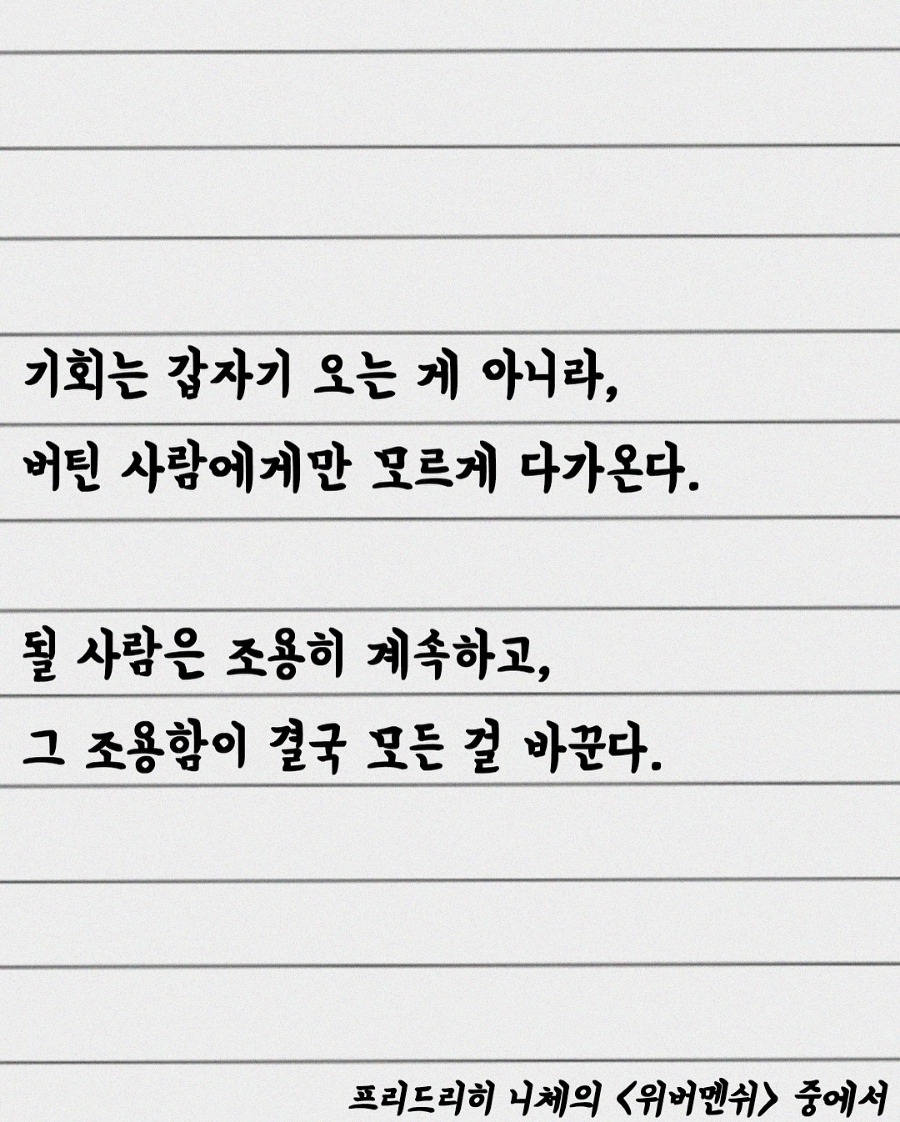 기회는 갑자기 오는 게 아니라,
버틴 사람에게만 모르게 다가온다.
될 사람은 조용히 계속하고,
그 조용함이 결국 모든 걸 바꾼다.
프리드리히 니체의 <위버멘쉬> 중에서